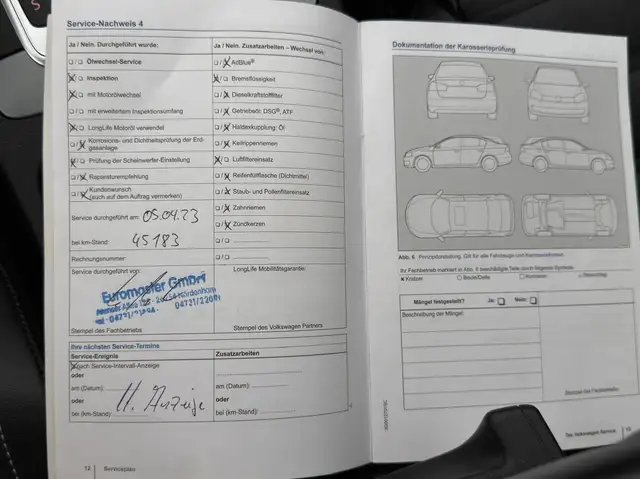 Service-Nachweis 4
Ja / Nein. Durchgeführt wurde:
Ölwechsel-Service
Inspektion
mit Motorölwechsel
mit erweitertem Inspektionsumfang
LongLife Motoröl verwendet
Korrosions- und Dichtheitsprüfung der Erdgasanlage
Prüfung der Scheinwerfer-Einstellung
Reparaturempfehlung
Kundenwunsch
(auch auf dem Auftrag vermerken)
Service durchgeführt am: 05.04.23
bei km-Stand: 45183
Rechnungsnummer:
Service durchgeführt von:
Euromaster GmbH
Stempel des Fachbetriebs
Ja / Nein. Zusatzarbeiten – Wechsel von:
AdBlue®
Bremsflüssigkeit
Dieselkraftstofffilter
Getriebeöl: DSG®, ATF
Haldexkupplung: Öl
Keilrippenriemen
Luftfiltereinsatz
Reifenfüllflasche (Dichtmittel)
Staub- und Pollenfiltereinsatz
Zahnriemen
Zündkerzen
LongLife Mobilitätsgarantie:
Stempel des Volkswagen Partners
Ihre nächsten Service-Termine
Service-Ereignis
Zusatzarbeiten
nach Service-Intervall-Anzeige
oder
am (Datum):
oder
bei (km-Stand):
am (Datum):
oder
bei (km-Stand):
Anzeige
12 Serviceplan
Dokumentation der Karosserieprüfung
Abb. 6 Prinzipdarstellung. Gilt für alle Fahrzeuge und Karosserieformen.
Ihr Fachbetrieb markiert in Abb. 6 beschädigte Teile durch folgende Symbole:
Kratzer
Beule/Delle
Korrosion
Steinschlag
Mängel festgestellt? Ja: Nein:
Beschreibung der Mängel:
Stempel des Fachbetriebs
Der Volkswagen Service 13